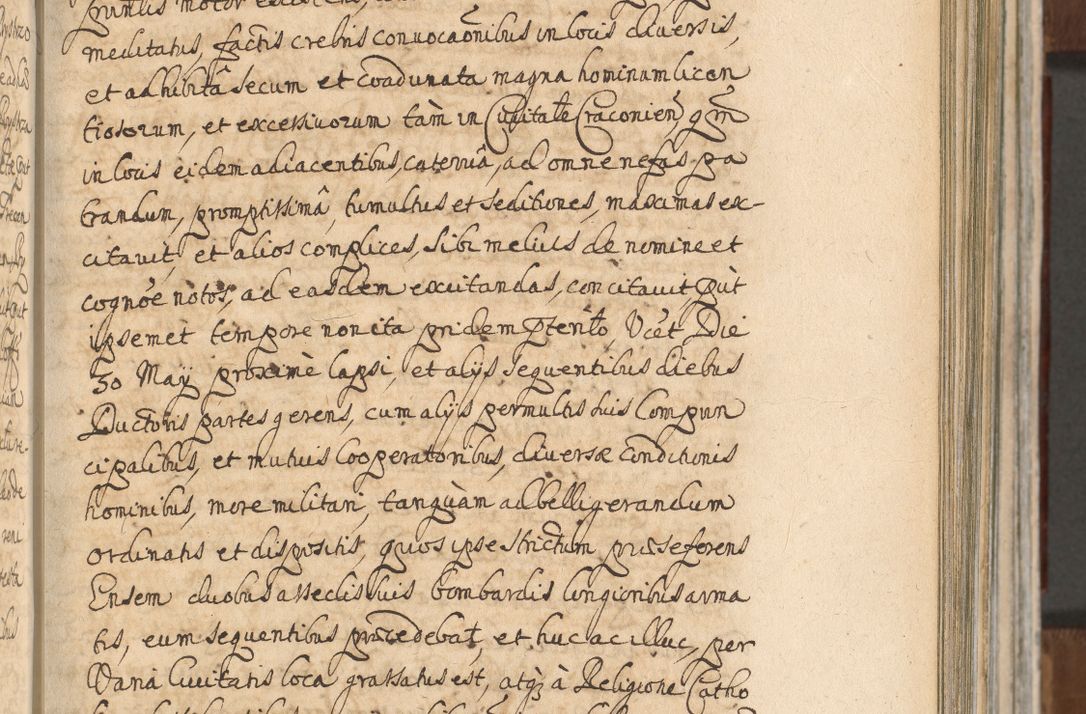 meditatus, factis crebris convocaõnibus in locis diversis,
et adhibitâ secum et coadunata magna hominum licen
tiosorum, et excessivorum tàm in Civitate Cracovien, qm
in locis eidem adiacentibus, catervâ, ad omne nefas pa
trandum, promptissimâ, tumultus et seditiones, maximas ex-
citavit, et alios complices, sibi melius de nomine et
cognõe notos, ad easdem excitandas, concitavit, put
ipsemet tempore non ita pridem pterito, Vcet Die
30 Maÿ proximè lapsi, et alijs sequentibus diebus
Ductoris partes gerens, cum alijs permultis suis Compun
cipalibus, et mutuis Cooperatoribus, diversæ Condicionis
hominibus, more militari, tanquàm ad belligerandum
ordinatis et dispositis, quos ipse strictum præseferens
Ensem duobus asseclis suis bombardis longioribus arma
tis, eum sequentibus præcedebat, et huc ac illuc, per
Varia Civitatis loca grassatus est, atq3 à Religione Catho